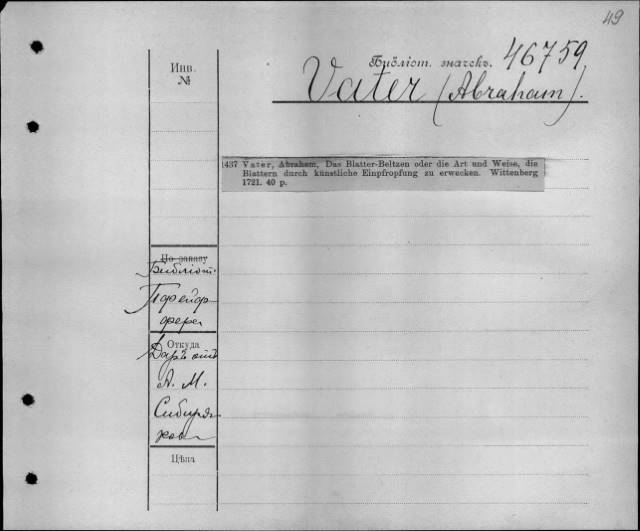 49
Библіот. значекъ. 46759
Vater (Abraham).
Инв.
№
1437 Vater, Abraham, Das Blatter-Beltzen oder die Art und Weise, die
Blattern durch künstliche Einpfropfung zu erwecken. Wittenberg
1721. 40 p.
По заказу
Библіот.
Пфейф-
фера
Откуда
Даръ отъ
А. М.
Сибиря-
кова
Цѣна